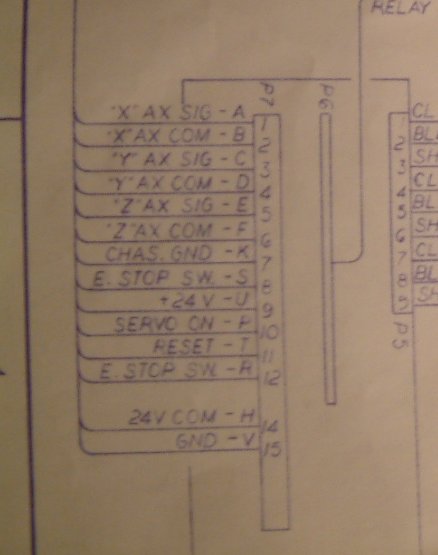 RELAY
P7
P6
"X" AX SIG - A 1
"X" AX COM - B 2
"Y" AX SIG - C 3
"Y" AX COM - D 4
"Z" AX SIG - E 5
"Z" AX COM - F 6
CHAS. GND - K 7
E. STOP SW. - S 8
+24 V - U 9
SERVO ON - P 10
RESET - T 11
E. STOP SW. - R 12
24V COM - H 14
GND - V 15
1 CL
2 BL
3 SH
4 CL
5 BL
6 SH
7 CL
8 BL
9 SH
P5